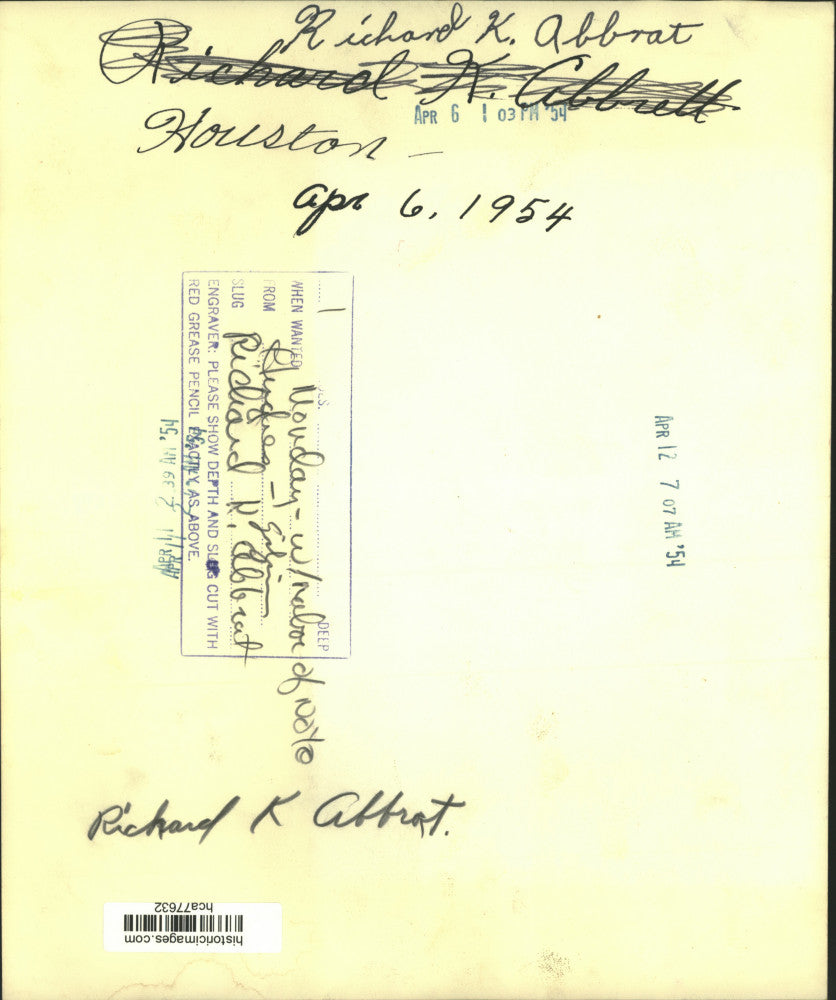 Richard K. Abbrat
Richard K. Abbrett
APR 6 1 03 PM '54
Houston -
Apr 6, 1954
1
DEEP
WHEN WANTED Monday - w/
FROM
SLUG Richard K. Abbrat
ENGRAVER: PLEASE SHOW DEPTH AND SLUG CUT WITH
RED GREASE PENCIL EXACTLY AS ABOVE.
APR 12 7 07 AM '54
Richard K Abbrat.
historicimages.com
hca77632